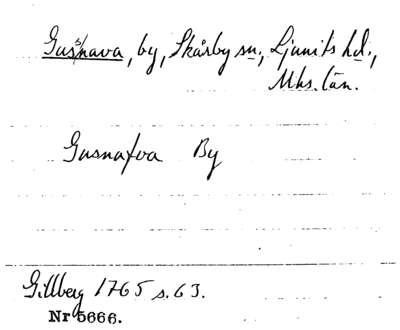 Gussnava, by, Skårby sn, Ljunits hd.,
Mhs. län.
Gusnafva By
Gillberg 1765 s. 63.
Nr 5666.